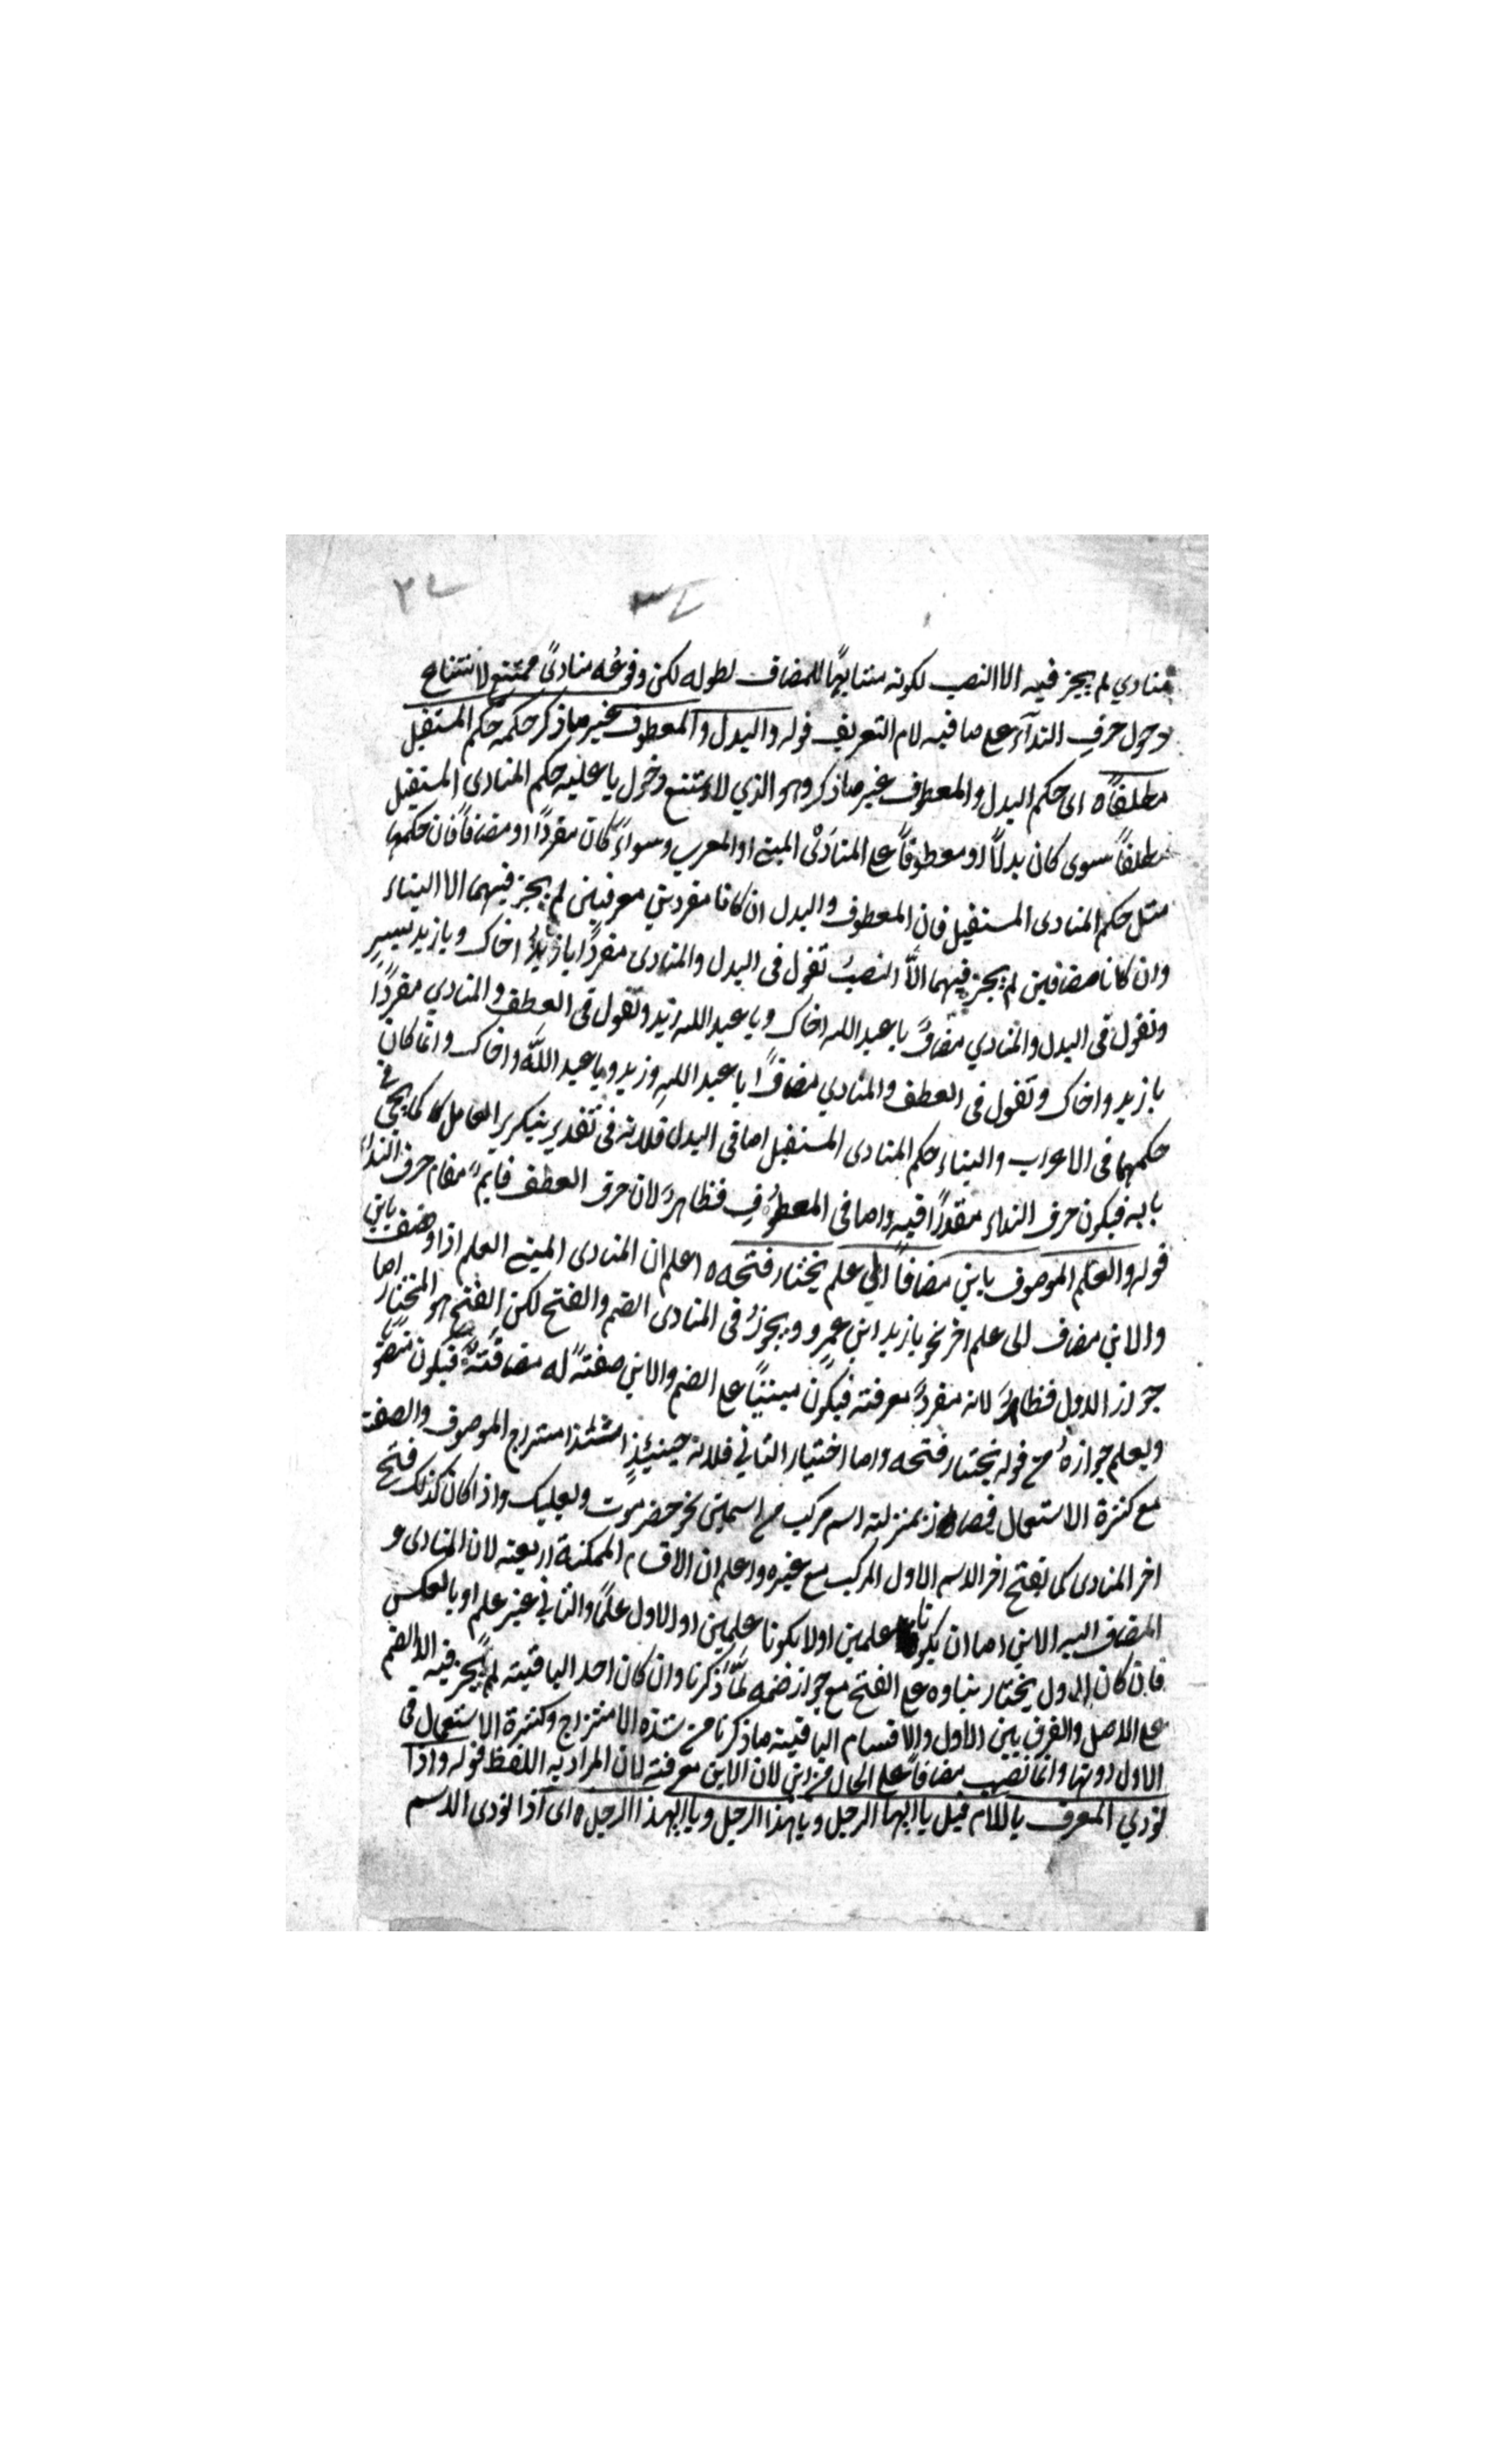 منادي لم يجز فيه الا النصب لكونه مشابهًا للمضاف لطوله لكن وقوعُه منادىً ممتنع لامتناع
دخول حرف الندآء على ما فيه لام التعريف قوله والبدل والمعطوف غير ما ذكر حكمه حكم المستقبل
مطلقاً ه اى حكم البدل والمعطوف غير ما ذكر وهو الذي لا يمتنع دخول يا عليه حكم المنادى المستقبل
مطلقاً سوى كان بدلاً او معطوفاً على المنادَى المبنى او المعرب وسواءً كان مفردًا او مضافاً فان حكمهما
مثل حكم المنادى المستقبل فان المعطوف والبدل ان كانا مفردين معرفتين لم يجز فيهما الا البناء
وان كانا مضافين لم يجز فيهما الّا النصبُ تقول فى البدل والمنادى مفردًا يا زيدُ اخاك ويا زيد بسيرِ
وتقول فى البدل والمنادي مضافً يا عبد الله اخاك ويا عبد الله زيد وتقول فى العطف والمنادي مفردًا
يا زيد واخاك وتقول فى العطف والمنادي مضافًا يا عبد اللهِ وزيد ويا عبد اللَّه واخاك وانما كان
حكمهما فى الاعراب والبناء حكم المنادى المستقبل اما فى البدل فلانه فى تقدير بتكرير العامل كما يجئ فى
بابه فيكون حرف النداء مقدرًا فيه واما فى المعطوف فظاهرٌ لان حرف العطف قايمٌ مقام حرف النداء
قوله والعلم الموصوف بابن مضافاً الي علم يختار فتحه ه اعلم ان المنادى المبنى العلم اذا وصف بابن
والابن مضاف الى علم اخر نحو يا زيد ابن عمرٍو ويجوزُ فى المنادى الضم والفتح لكن الفتح هو المختار اما
جواز الاول فظاهرٌ لانه مفردٌ معرفته فيكون مبنيًا على الضم والابن صفتهً له مضافتهً فيكون منصوبًا
ويعلم جوازهُ من قوله يختار فتحه واما اختيار الثاني فلانه حينئذٍ اشتد امتزاج الموصوف والصفة
مع كثرة الاستعمال فصار بمنزلته اسم مركب من اسمين نحو حضرموت وبعلبك واذا كان كذلك فتح
اخر المنادى كما يفتح اخر الاسم الاول المركب مع غيره واعلم ان الاقسام الممكنة اربعته لان المنادى و
المضاف اليه الابن اما ان يكونا علمين او لا يكونا علمين او الاول علمًا والثاني غير علم او بالعكس
فان كان الاول يختار بناوه على الفتح مع جواز ضمه لمَّا ذكرنا وان كان احد الباقيته لم يجز فيه الا الضم
على الاصل والفرق بين الاول والاقسام الباقيته ما ذكرنا من شدة الامتزاج وكثرة الاستعمال فى
الاول دونها وانما نصب مضافاً على الحال من ابن لان الابن معرفته لان المراد به اللفظ قوله واذا
نودي المعرف باللام قيل يا ايها الرجل ويا هذا الرجل ويا ايهذا الرجل ه اى اذا نودى الاسم